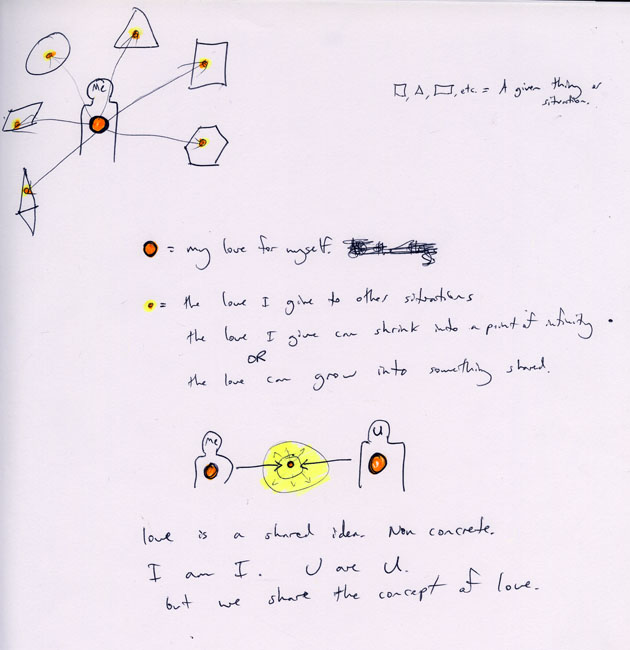 Me
□, △, ▭, etc. = A given thing or
situation.
= my love for myself.
= the love I give to other situations
the love I give can shrink into a point of infinity .
OR
the love can grow into something shared.
Me
U
love is a shared idea. Non concrete.
I am I. U are U.
but we share the concept of love.